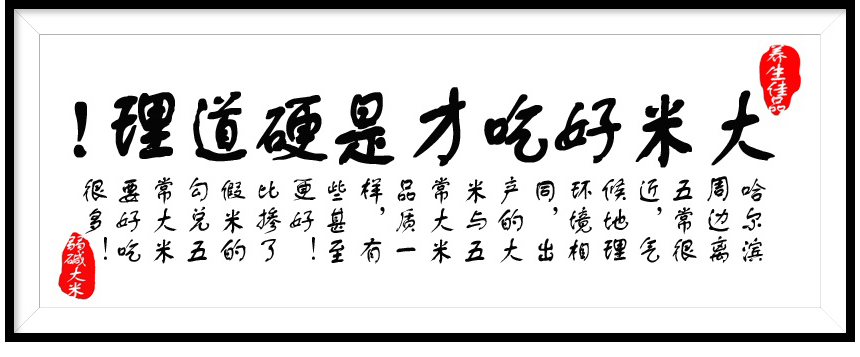 养生佳品
大米好吃才是硬道理!
哈尔滨
周边离
五常很
近，气
候地理
环境相
同，出
产的大
米与五
常大米
品质一
样，有
些甚至
更好！
比掺了
假米的
勾兑五
常大米
要好吃
很多！
弱碱大米